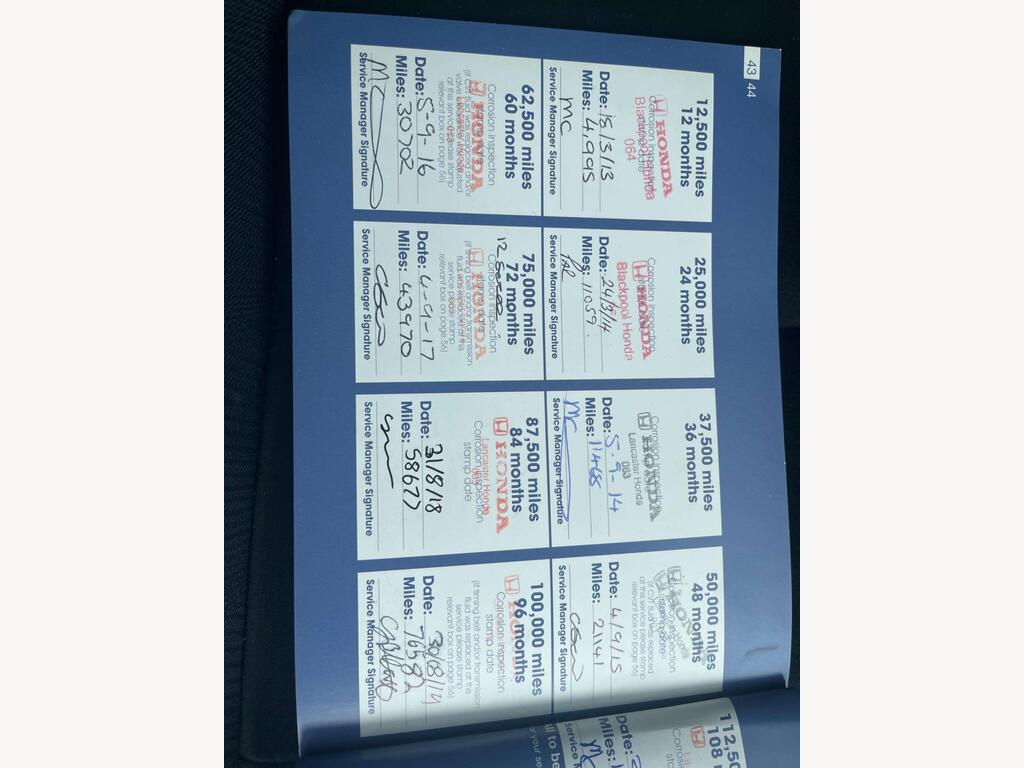 43 44
12,500 miles
12 months
HONDA
Corrosion inspection
Blackpool Honda
064
Date: 15/3/13
Miles: 4995
MC
Service Manager Signature
25,000 miles
24 months
Corrosion inspection
HONDA
Blackpool Honda
Date: 24/3/14
Miles: 11059.
Service Manager Signature
37,500 miles
36 months
Corrosion inspection
HONDA
083
Lancaster Honda
Date: 5-9-14
Miles: 11468
MC
Service Manager Signature
50,000 miles
48 months
HONDA
Corrosion inspection
(If CVT fluid was replaced
at this service please stamp
relevant box on page 56)
Date: 4/9/15
Miles: 21141
Service Manager Signature
62,500 miles
60 months
Corrosion inspection
HONDA
(If CVT fluid was replaced and/or
valve clearance was adjusted
at this service please stamp
relevant box on page 56)
Date: 5-9-16
Miles: 30702
MC
Service Manager Signature
75,000 miles
72 months
Corrosion inspection
HONDA
(If timing belt and/or transmission
fluid was replaced at this
service please stamp
relevant box on page 56)
Date: 4-9-17
Miles: 43970
Service Manager Signature
87,500 miles
84 months
HONDA
Corrosion inspection
Lancaster Honda
stamp date
Date: 31/8/18
Miles: 58677
Service Manager Signature
100,000 miles
96 months
HONDA
Corrosion inspection
stamp date
(If timing belt and/or transmission
fluid was replaced at this
service please stamp
relevant box on page 56)
Date: 30/8/19
Miles: 76582
Service Manager Signature
112,5
108
Corros
Date:
Miles:
Service